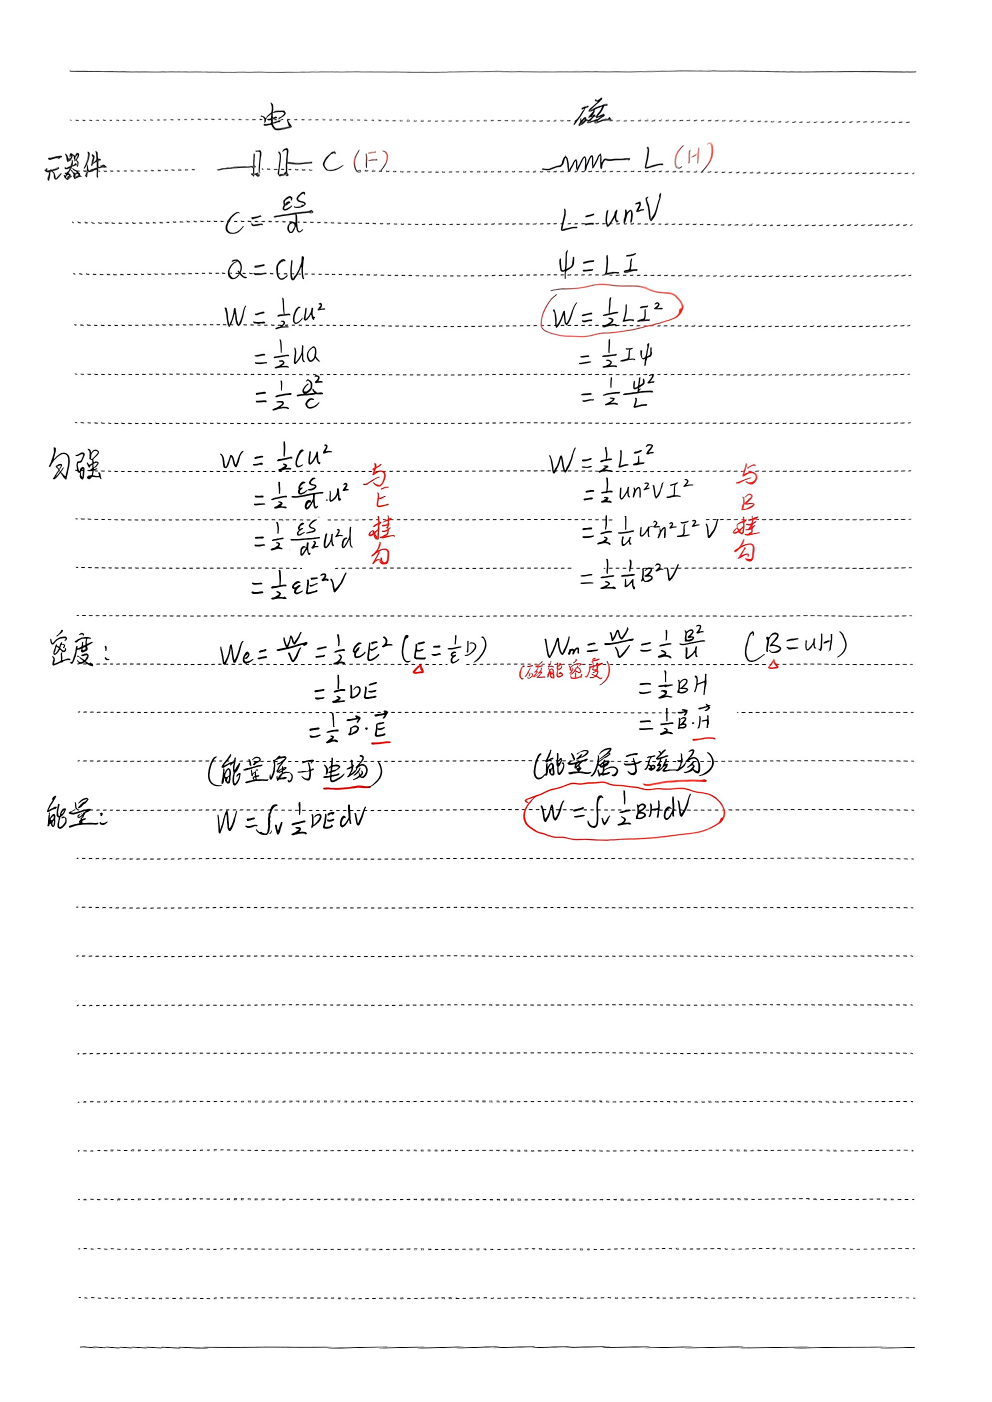 电 磁
元器件 C (F) L (H)
C = εS/d L = un²V
Q = CU Ψ = LI
W = ½CU² W = ½LI²
= ½UQ = ½IΨ
= ½ Q²/C = ½ Ψ²/L
匀强 W = ½CU² W = ½LI²
= ½ εS/d · U² 与E挂勾 = ½un²VI² 与B挂勾
= ½ εS/d² U²d = ½ 1/u u²n²I²V
= ½εE²V = ½ 1/u B²V
密度: We = W/V = ½εE² (E = 1/ε D) Wm = W/V = ½ B²/u (B = uH)
(磁能密度)
= ½DE = ½BH
= ½ D⃗·E⃗ = ½ B⃗·H⃗
(能量属于电场) (能量属于磁场)
能量: W = ∫v ½DEdV W = ∫v ½BHdV